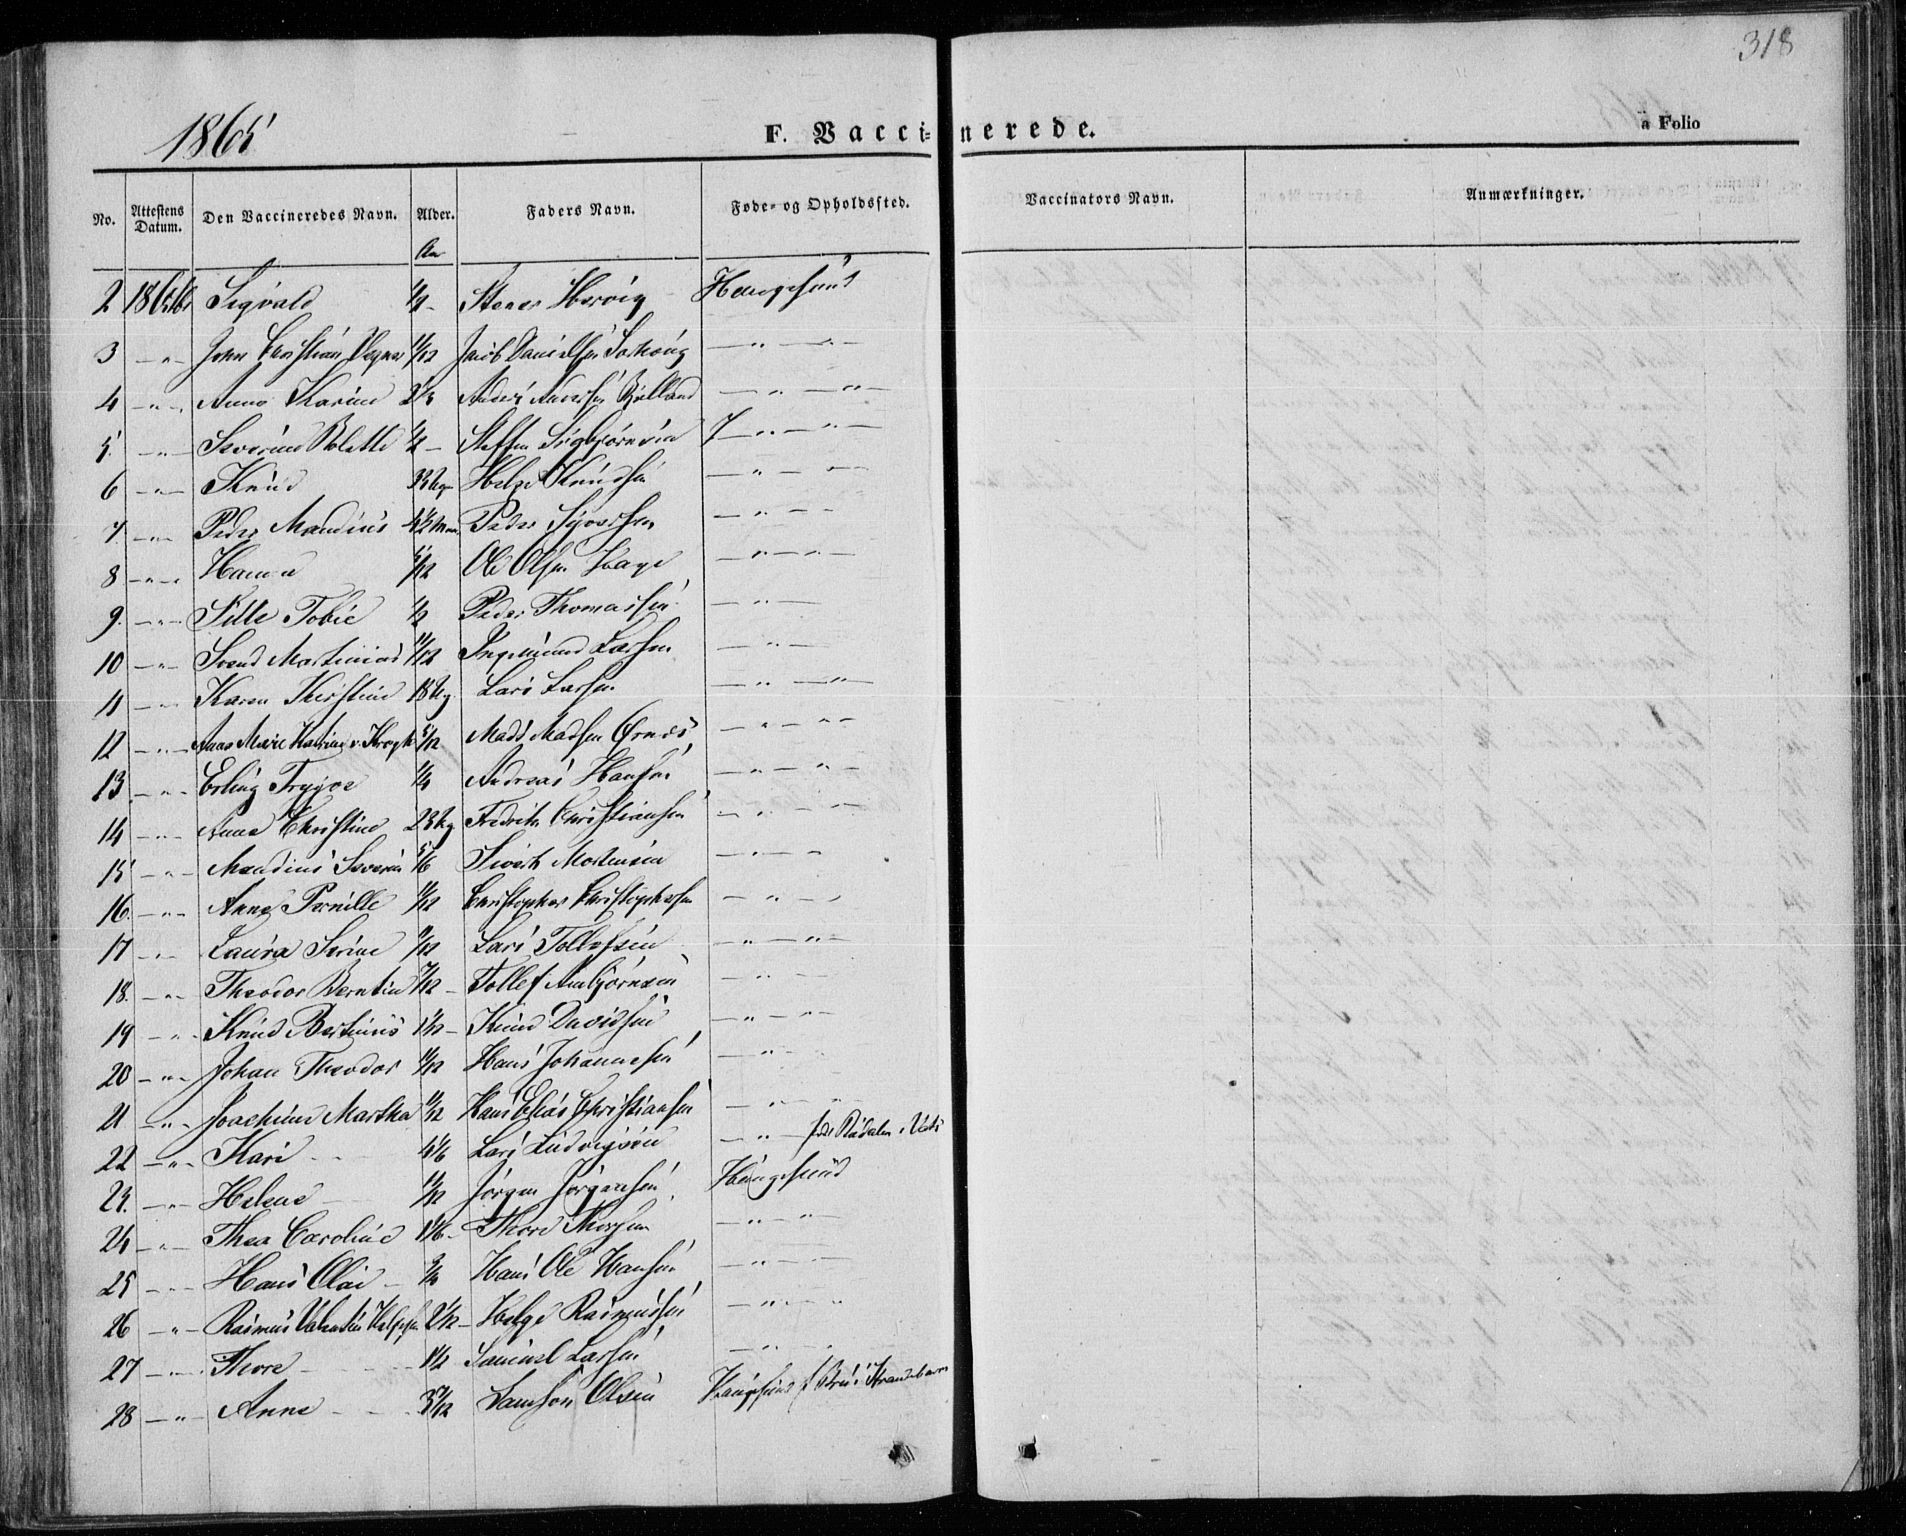 318
1865
F. Vaccinerede.
a Folio
No. Attestens Datum. Den Vaccineredes Navn. Alder. Faders Navn. Føde- og Opholdssted. Vaccinators Navn. Anmærkninger.
Aar
2 Sigvald 1/2 - Haugesund
3 - " - John Christian 11/12 Jacob Danielsen - " - " -
4 - " - Anna Karine 2 1/3 Anders Andersen - " - " -
5. - " - Severine Bolette Steffen - " - " -
6 - " - Knud Helge Knudsen - " - " -
7. - " - Peder Mandius Peder Syversen - " - " -
8 - " - Hanna 5/12 Ole Olsen Hage - " - " -
9. - " - Sille Tobie 1/2 Peder Thomassen - " -
10 - " - Svend Martinius 11/12 Ingemund Larsen - " -
11 - " - Karen Kirstine 18 Ug. Lars Larsen - " - " -
12 - " - Anna Marie 5/12 Mads Madsen Ørnes - " - " -
13 - " - Erling Trygve 1/4 Andreas Hansen - " - " -
14 - " - Anna Christine 23 Ug. Fredrik Christiansen - " - " -
15 - " - Mandius Severin 5/6 Sivert Mortensen - " -
16. - " - Anne Pernille 11/12 Christopher Christophersen - " - " -
17 - " - Laura Serine 11/12 Lars Tollefsen - " - " -
18. - " - Theodor Berntin 7/12 - Tollef - " - "
19 - " - Knud Bertinius - Knud Davidsen - " - " -
20 - " - Johan Theodor 11/12 Hans Johannesen - " -
21 - " - Joachime Martha 11/12 Hans Elias Christiansen - " - "
22 - " - Kari 4 1/6 Lars Ludvigsen - " -
23. - " - Helene 11/12 Jørgen Jørgensen Haugesund
24 - " - Thea Caroline 1 1/6 - Thore Thorsen - " - " -
25 - " - Hans Olai - Hans Ole Hansen - " -
26 - " - Rasmus Valentin Helgesen 2 1/12 - Helge Rasmussen - " - "
27 - " - Thore 1 1/2 Samuel Larsen - " -
28 - " - Anne 3 7/12 Samson Olsen Haugesund f. i Strandebarm